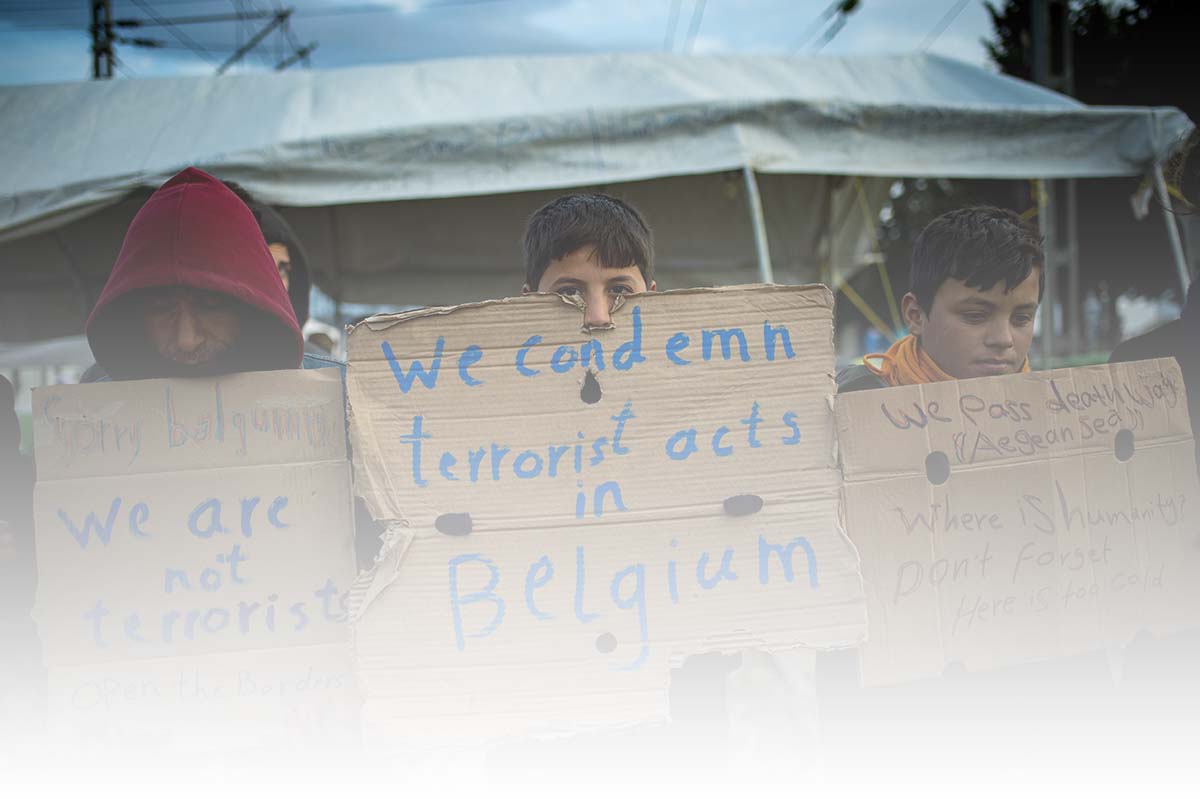 Sorry belgumn
We are
not
terrorists
Open the Borders
We condemn
terrorist acts
in
Belgium
We pass death way
"(Aegean Sea)"
Where is humanity?
Don't Forget
Here is too cold